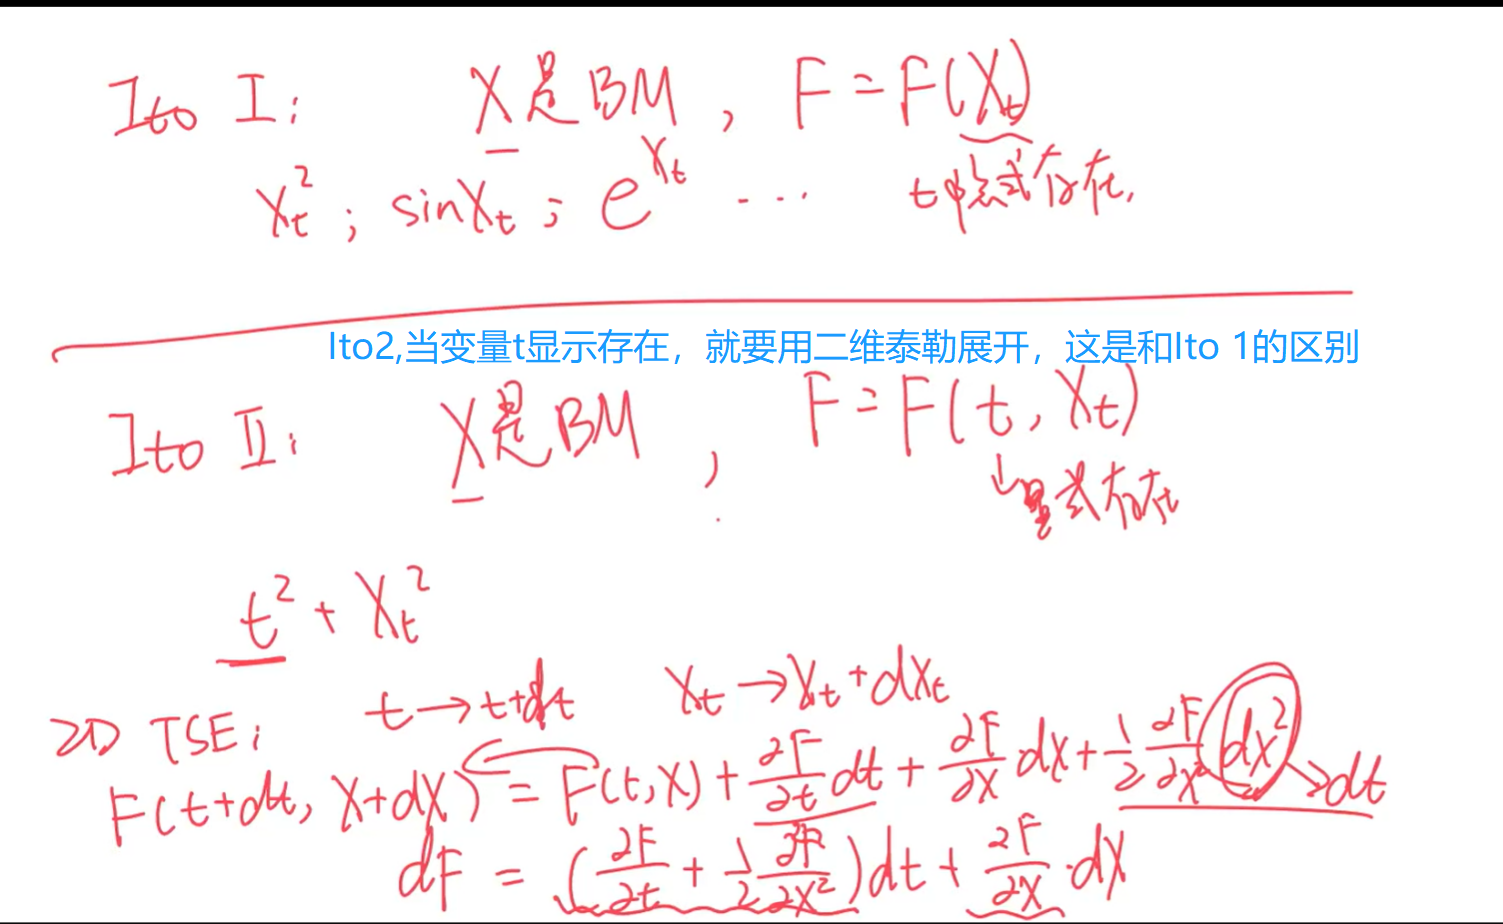 Ito I: X是BM, F=F(Xₜ)
Xₜ²; sinXₜ; e^Xₜ ... t隐式存在.
Ito2,当变量t显示存在，就要用二维泰勒展开，这是和Ito 1的区别
Ito II: X是BM, F=F(t, Xₜ)
↓显式存在
t² + Xₜ²
2D TSE: t→t+dt Xₜ→Xₜ+dXₜ
F(t+dt, X+dX) = F(t,X) + ∂F/∂t dt + ∂F/∂X dX + 1/2 ∂F/∂X² dX² → dt
dF = (∂F/∂t + 1/2 ∂²F/∂X²)dt + ∂F/∂X·dX